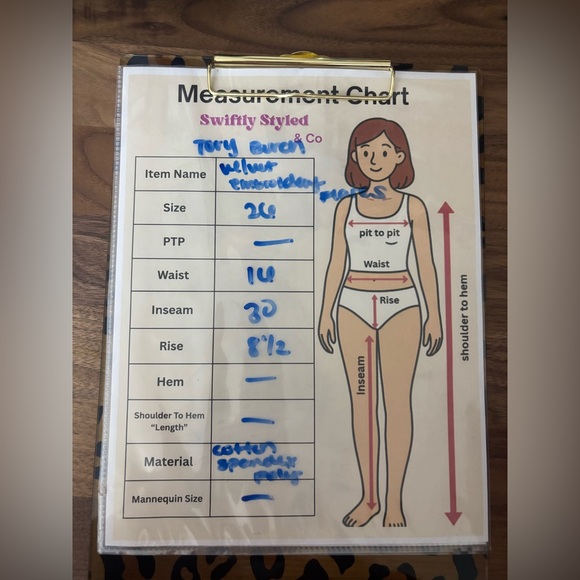 Measurement Chart
Swiftly Styled
& Co
Tory Burch
Item Name velvet
Size
PTP —
Waist
Inseam 30
Rise 8 1/2
Hem —
Shoulder To Hem
"Length" —
Material cotton
spandex
poly
Mannequin Size —
pit to pit
Waist
Rise
Inseam
shoulder to hem